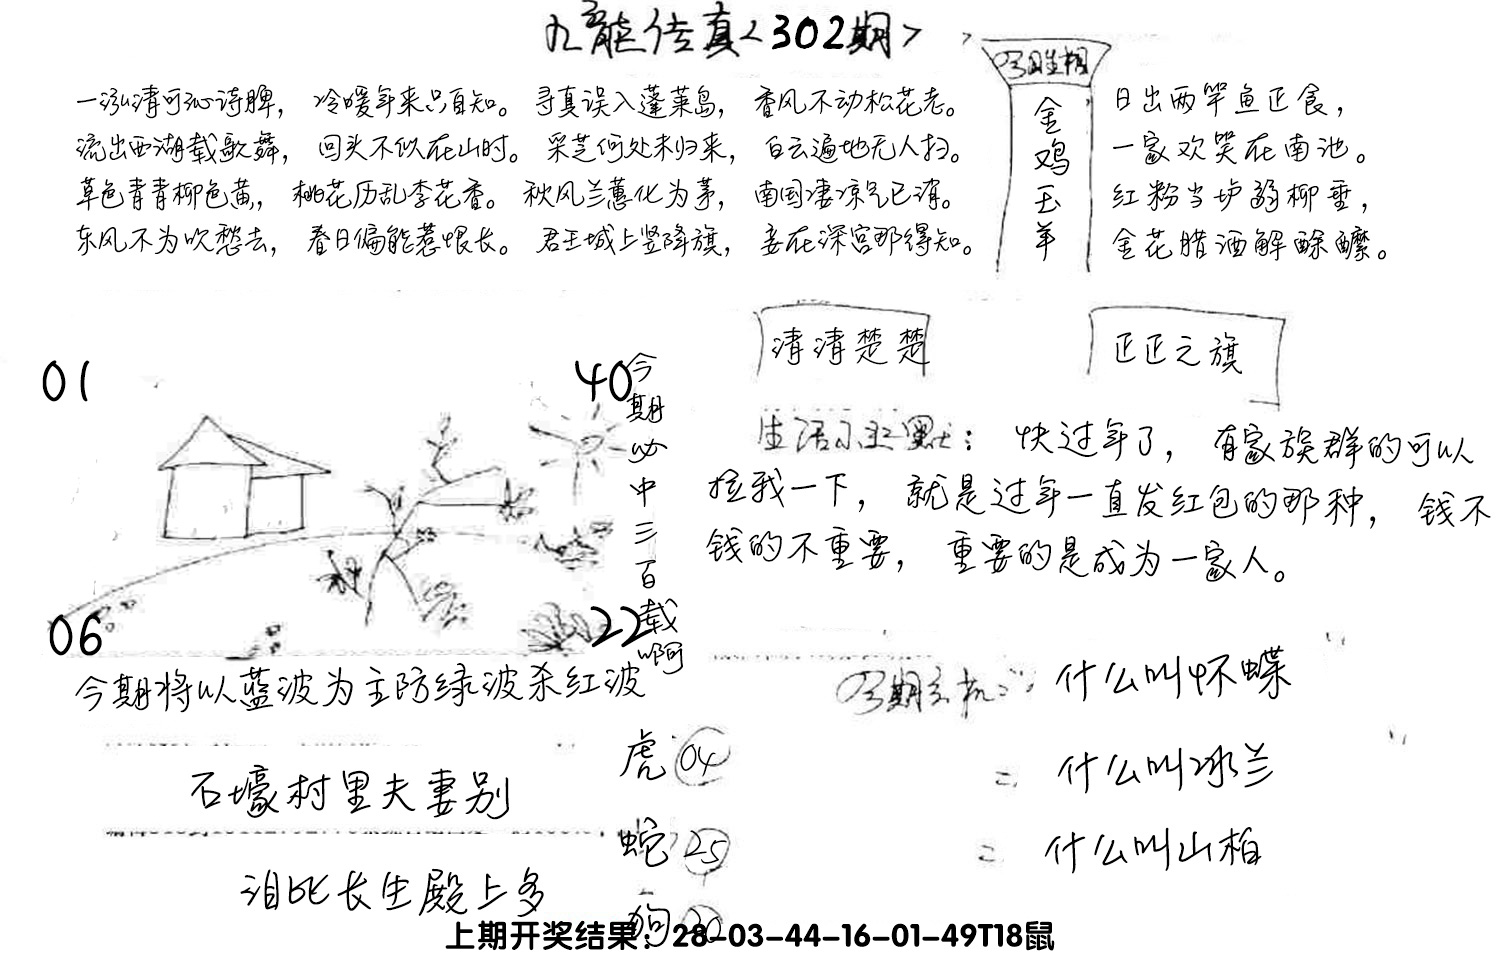 九龙传真<302期>
一泓清可沁诗脾，冷暖年来只自知。寻真误入蓬莱岛，香风不动松花老。
流出西湖载歌舞，回头不似在山时。采芝何处未归来，白云遍地无人扫。
草色青青柳色黄，桃花历乱李花香。秋风兰蕙化为茅，南国凄凉气已消。
东风不为吹愁去，春日偏能惹恨长。君王城上竖降旗，妾在深宫那得知。
金鸡玉羊
日出两竿鱼正食，
一家欢笑在南池。
红粉当垆弱柳垂，
金花腊酒解酴醾。
清清楚楚
正正之旗
01
40
06
22
今期必中三百载啊
生活小幽默：快过年了，有家族群的可以
拉我一下，就是过年一直发红包的那种，钱不
钱的不重要，重要的是成为一家人。
今期将以蓝波为主防绿波杀红波
石壕村里夫妻别
泪比长生殿上多
虎 04
蛇 25
狗 30
今期玄机：什么叫怀蝶
= 什么叫冰兰
= 什么叫山柏
上期开奖结果：28-03-44-16-01-49T18鼠